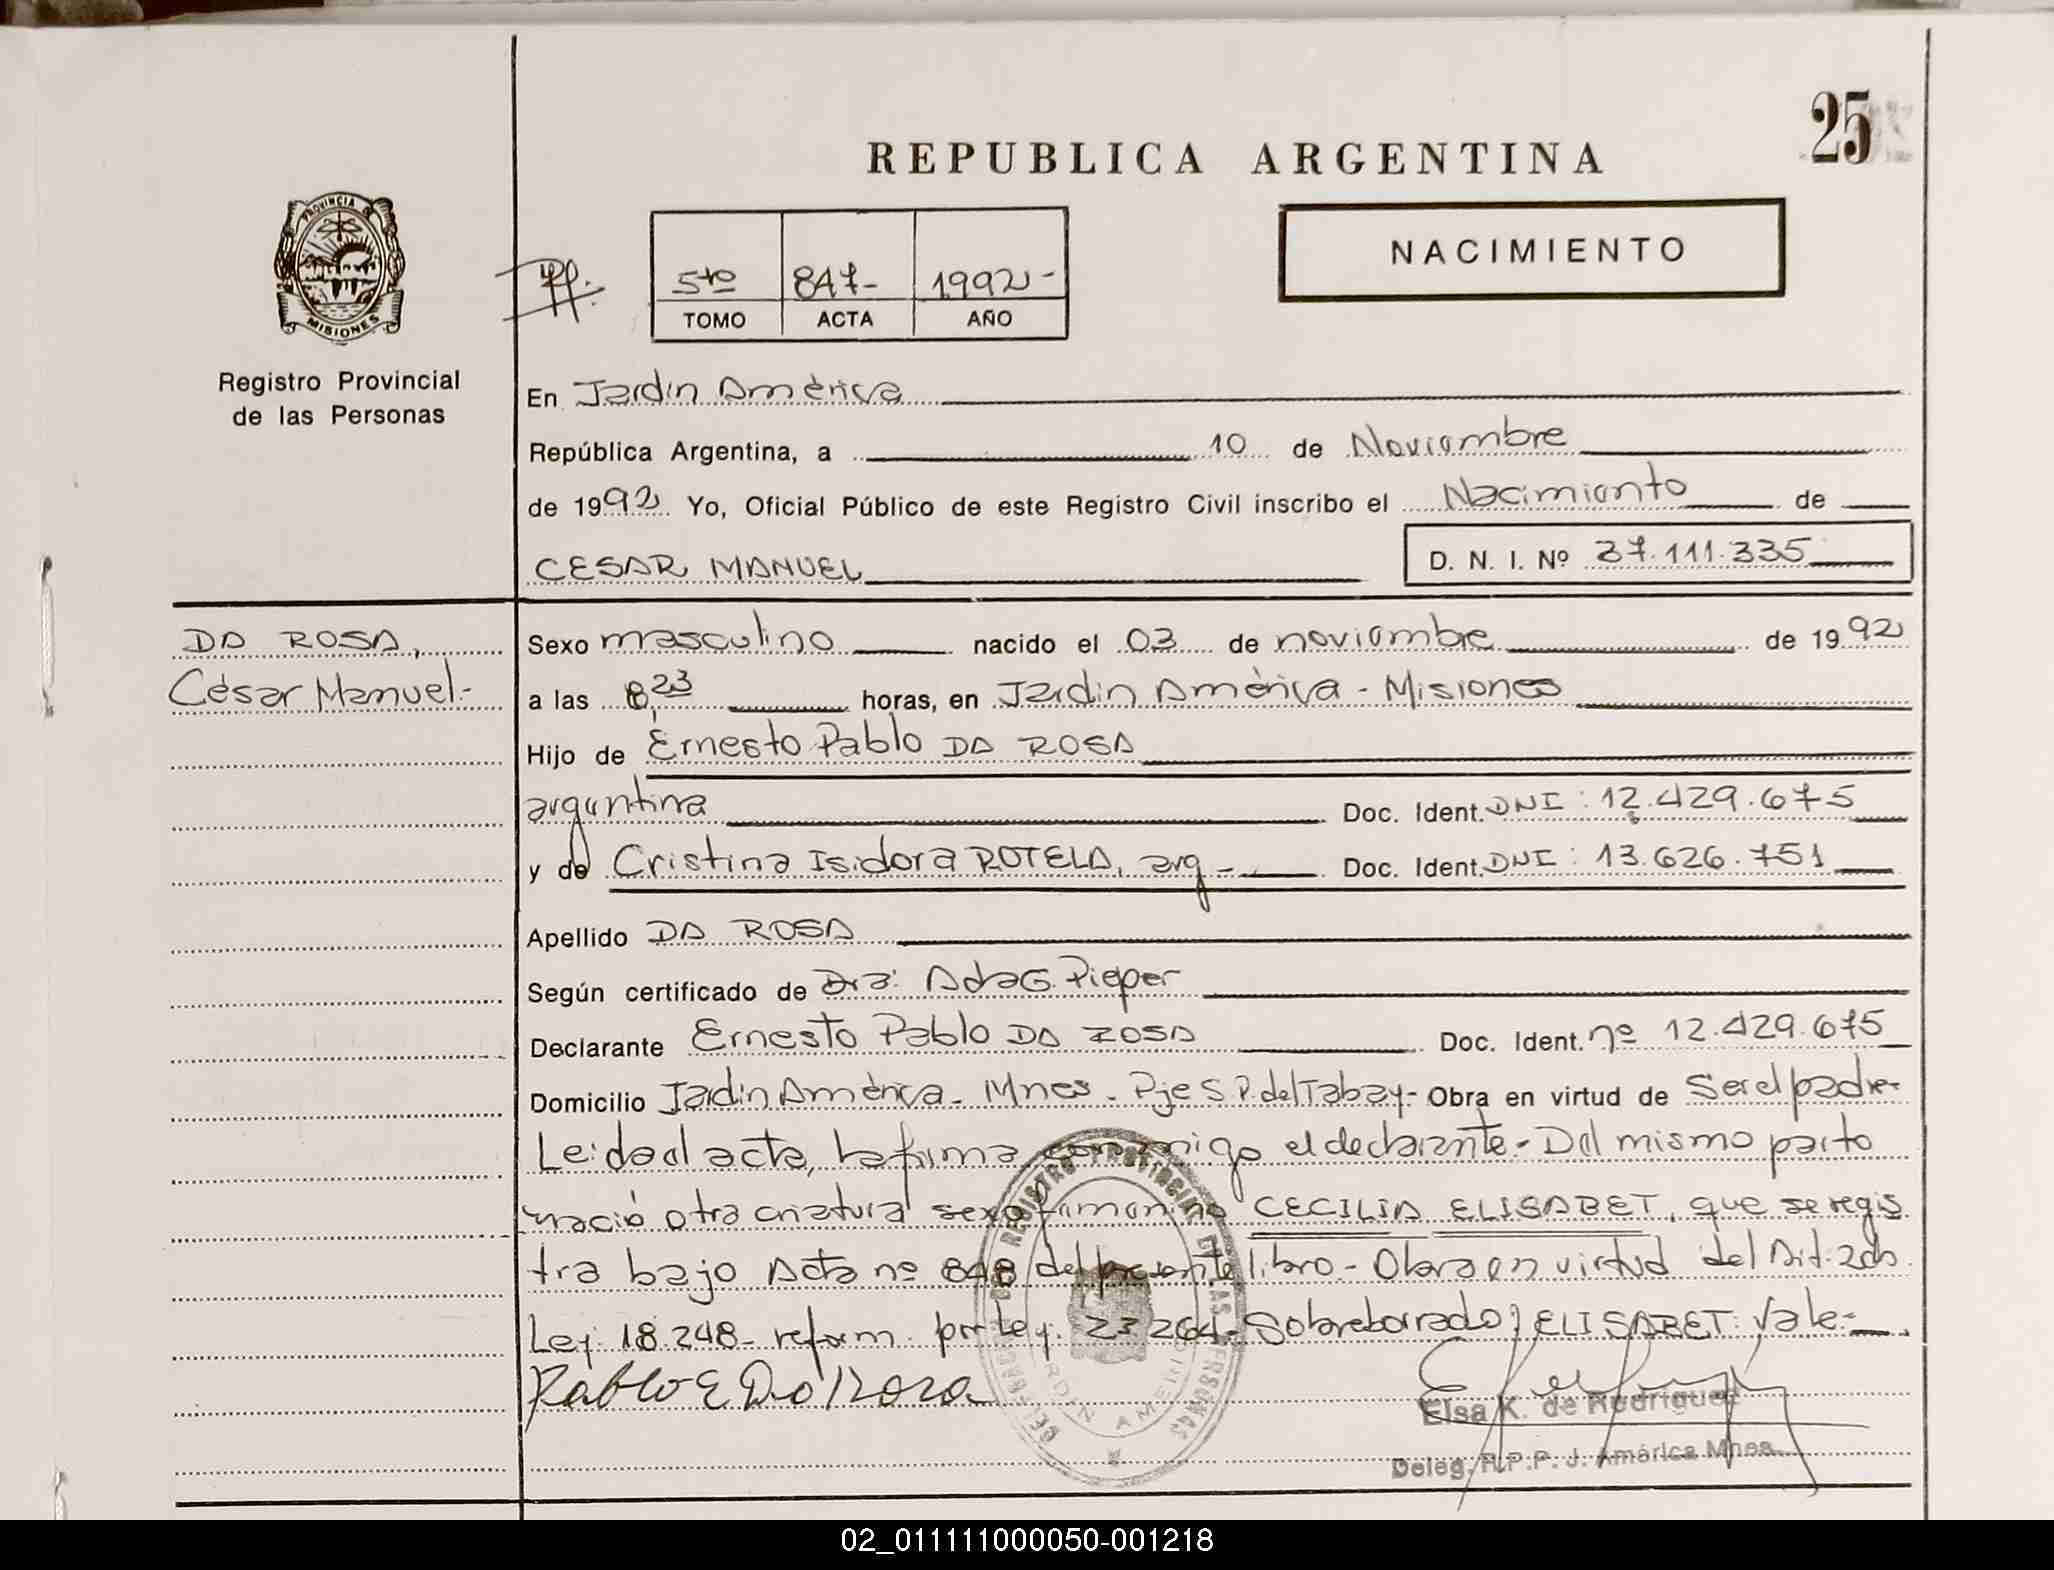 25
REPUBLICA ARGENTINA
PROVINCIA DE
MISIONES
Registro Provincial
de las Personas
5to 847- 1992-
TOMO ACTA AÑO
NACIMIENTO
En Jardín América
República Argentina, a 10 de Noviembre
de 1992 Yo, Oficial Público de este Registro Civil inscribo el Nacimiento de
CESAR MANUEL D. N. I. Nº 37.111.335
DA ROSA,
César Manuel.-
Sexo masculino nacido el 03 de noviembre de 1992
a las 8,23 horas, en Jardín América - Misiones
Hijo de Ernesto Pablo DA ROSA
argentina Doc. Ident. DNI: 12.429.675
y de Cristina Isidora ROTELA, arg - Doc. Ident. DNI: 13.626.751
Apellido DA ROSA
Según certificado de Dra: Ada G. Pieper
Declarante Ernesto Pablo DA ROSA Doc. Ident. nº 12.429.675
Domicilio Jardín América - Mnes - Pje S.P. del Tabay - Obra en virtud de Ser el padre-
Leída el acta, la firma conmigo el declarante.- Del mismo parto
nació otra criatura sexo femenino CECILIA ELISABET, que se regis
tra bajo Acta nº 848 del presente libro.- Obra en virtud del Art. 2do
Ley: 18.248 - reform. por Ley. 23.264- Sobreborrado; ELISABET: Vale.-
Pablo E Da Rosa
Elsa K. de Rodriguez
Deleg. R.P.P. J. América Mnes.
REGISTRO PROVINCIAL DE LAS PERSONAS
JARDIN AMERICA
02_011111000050-001218